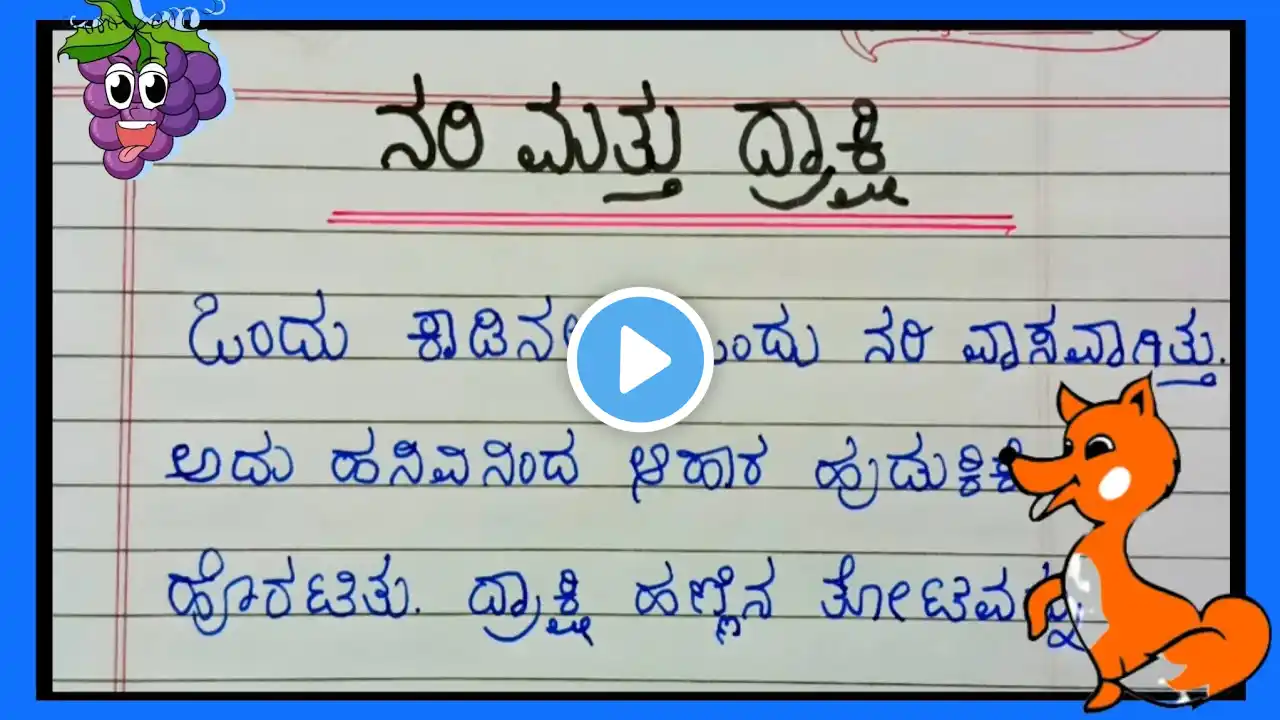 ನರಿ ಮತ್ತು ದ್ರಾಕ್ಷಿ
ಒಂದು ನರಿ ವಾಸವಾಗಿತ್ತು.
ಅದು ಹಸಿವಿನಿಂದ ಆಹಾರ
ಹೊರಟಿತು. ದ್ರಾಕ್ಷಿ ಹಣ್ಣಿನ